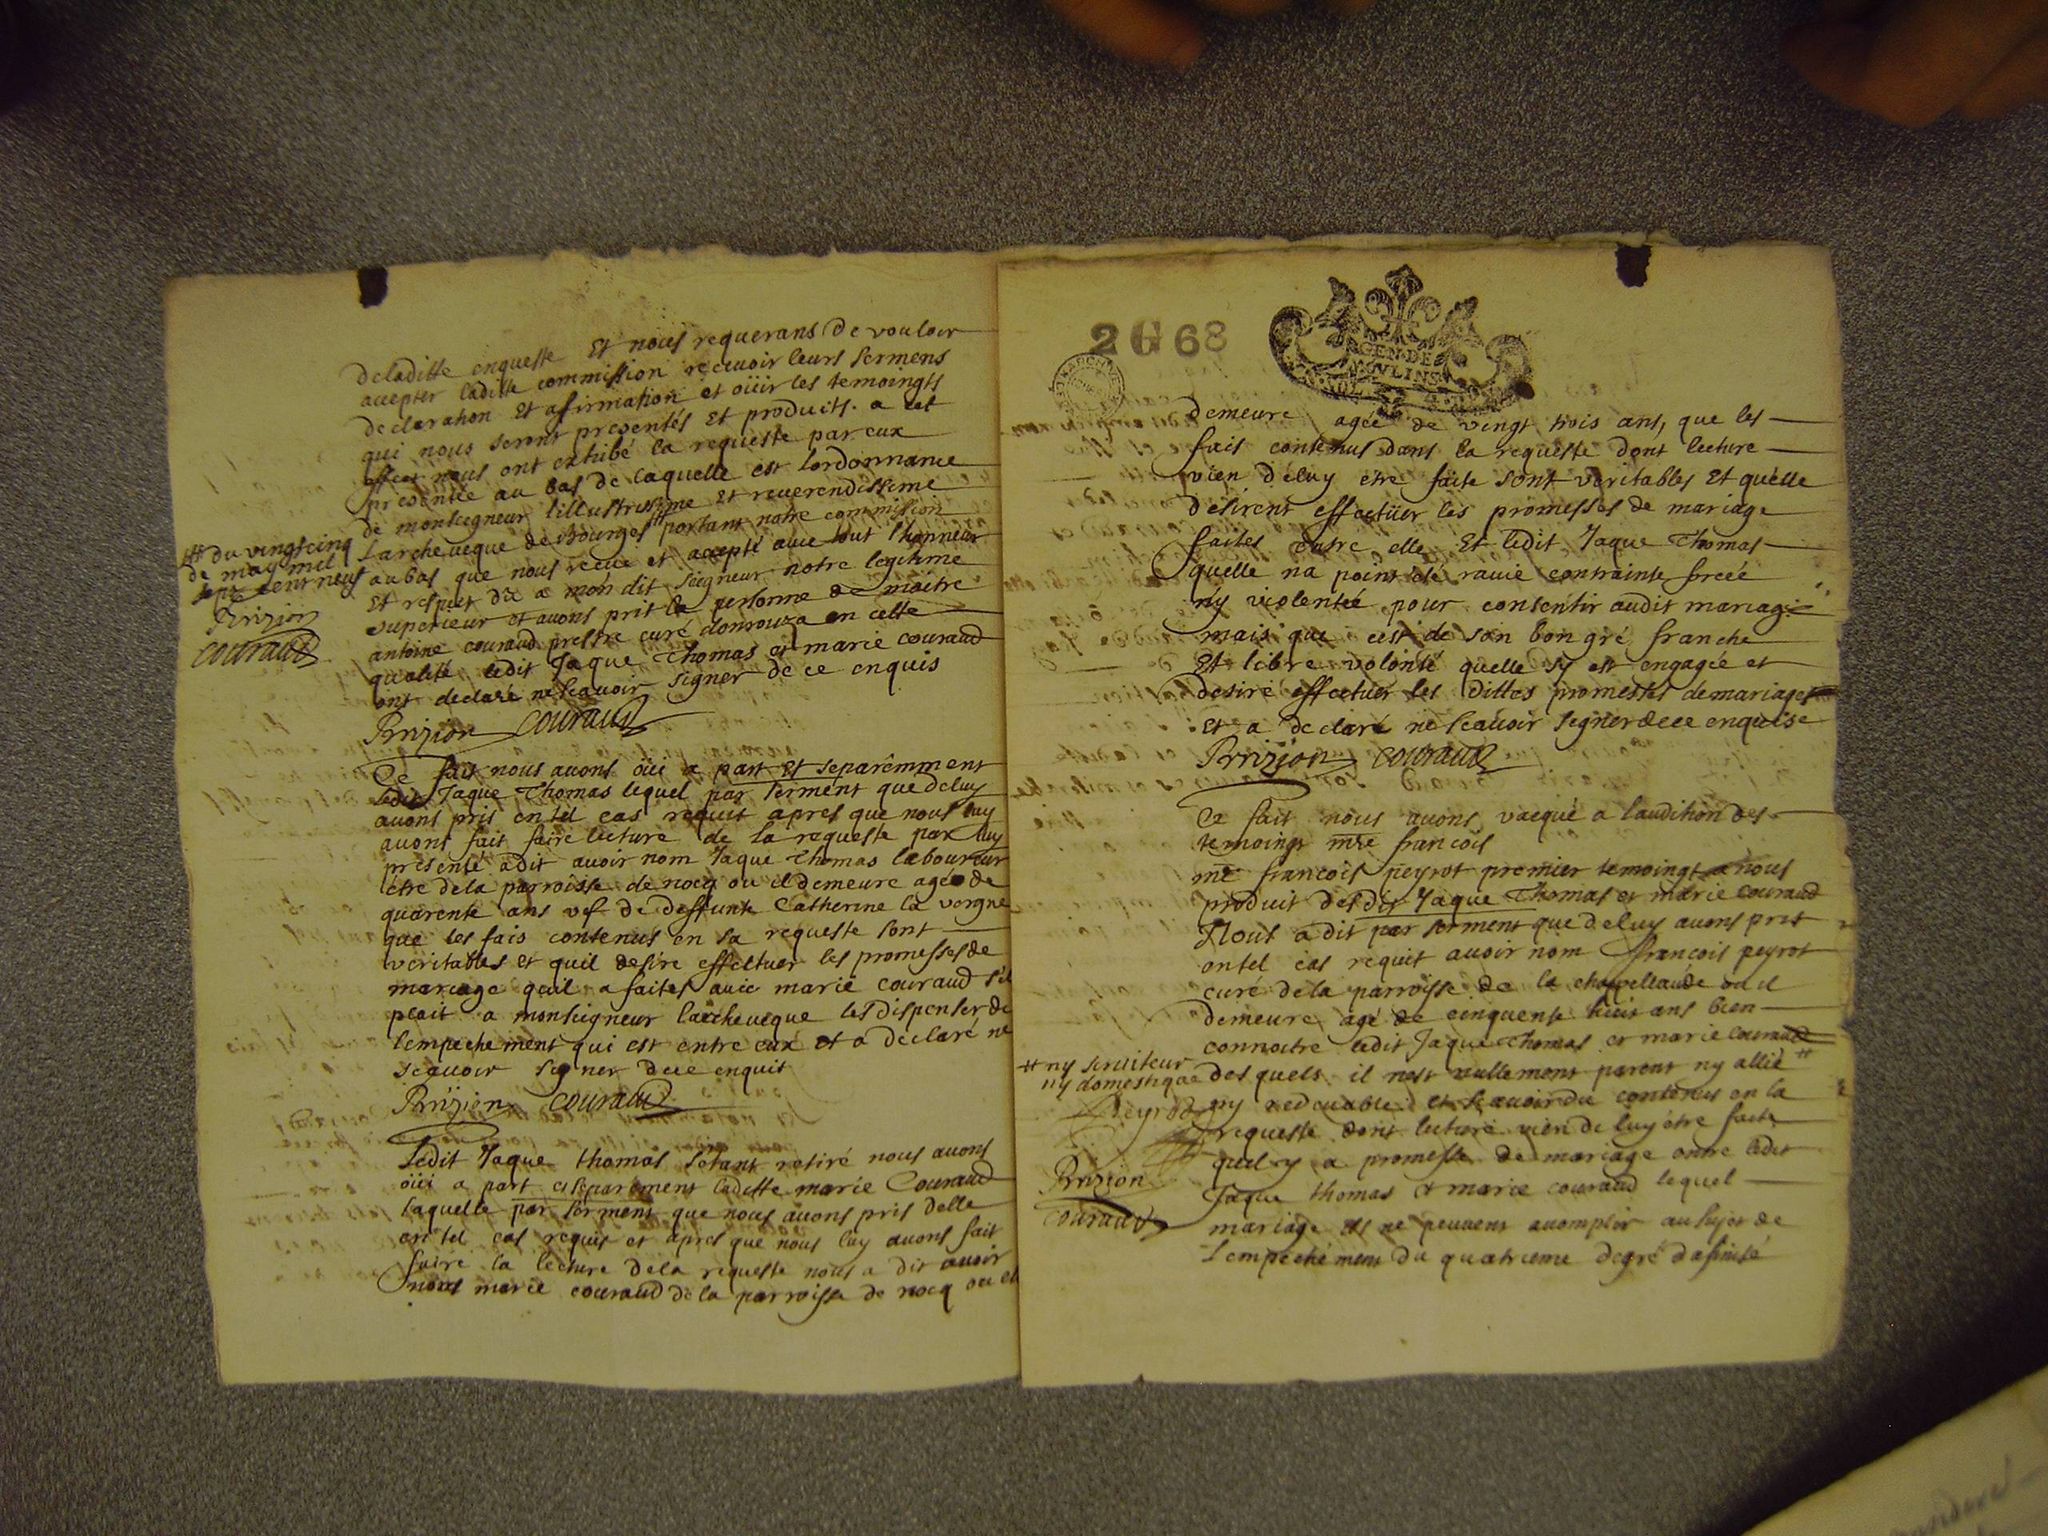 deladitte enqueste Et nous requerans de vouloir
accepter laditte commission recevoir leurs sermens
declaration Et afirmation et oüir les temoingts
qui nous seront presentés Et produits. a cet
effect nous ont exhibé la requeste par eux
presentée au bas de laquelle est lordonnance
de monseigneur lillustrissime Et reverendissime
Larcheveque de Bourges # portant notre commission
au bas que nous receue et accepté avec tout lhonneur
Et respect dû a mon dit seigneur notre legitime
superieur et avons prit la personne de maitre
antoine couraud prestre curé domrouza en cette
qualité ledit Jaque Thomas et marie couraud
ont declaré ne scavoir signer de ce enquis
Brizion couraud
# du vingtcinq
de may mil
sept cent neuf
Brizion
couraud
Ce fait nous avons oüi a part Et separêmment
ledit Jaque Thomas lequel par serment que deluy
avons pris en tel cas requit apres que nous luy
avons fait faire lecture de la requeste par luy
presenté a dit avoir nom Jaque Thomas laboureur
être dela parroisse de nocq ou il demeure agé de
quarente ans vef de deffunte Catherine la vergne
que les fais contenus en sa requeste sont
veritables et quil desire effectuer les promesses de
mariage quil a faites avec marie couraud s'il
plait a monseigneur larcheveque les dispenser de
lempechement qui est entre eux et a declaré ne
scavoir signer de ce enquit
Brizion couraud
Ledit Jaque thomas setant retiré nous avons
oüi a part et separement laditte marie Couraud
laquelle par serment que nous avons pris delle
en tel cas requis et apres que nous luy avons fait
faire la lecture dela requeste nous a dit avoir
nom marie couraud de la parroisse de nocq ou el
2 G 68
GEN. DE
MOVLINS
demeure agée de vingt trois ans, que les
fais contenus dans la requeste dont lecture
vien deluy etre faite sont veritables Et quelle
desirent effectüer les promesses de mariage
faites entre elle Et ledit Jaque Thomas
quelle na point été ravie contrainte forcée
ny violentée pour consentir audit mariage
mais que cest de son bon gré franche
Et libre volonté quelle sy est engagée et
desire effectuer les dittes promesses demariages
Et a declaré ne scavoir signer dece enquise
Brizion couraud
Ce fait nous avons vacqué a laudition des
temoingt mre francois
mre francois peyrot premier temoingt a nous
produit des dit Jaque Thomas et marie couraud
Nous a dit par serment que deluy avons prit
en tel cas requit avoir nom francois peyrot
curé dela parroisse de la chapellaude ou il
demeure agé de cinquente huit ans bien
connoitre ledit Jaque Thomas et marie couraud
des quels il nest nullement parent ny allié #
ny redevable et scavoir du contenus en la
requeste dont lecture vien de luy être faite
quil y a promesse de mariage entre ledit
Jaque thomas et marie couraud lequel
mariage ils ne peuvent acomplir au sujet de
Lempechement du quatrieme degré dafinité
# ny serviteur
ny domestique
Peyrot
Brizion
couraud